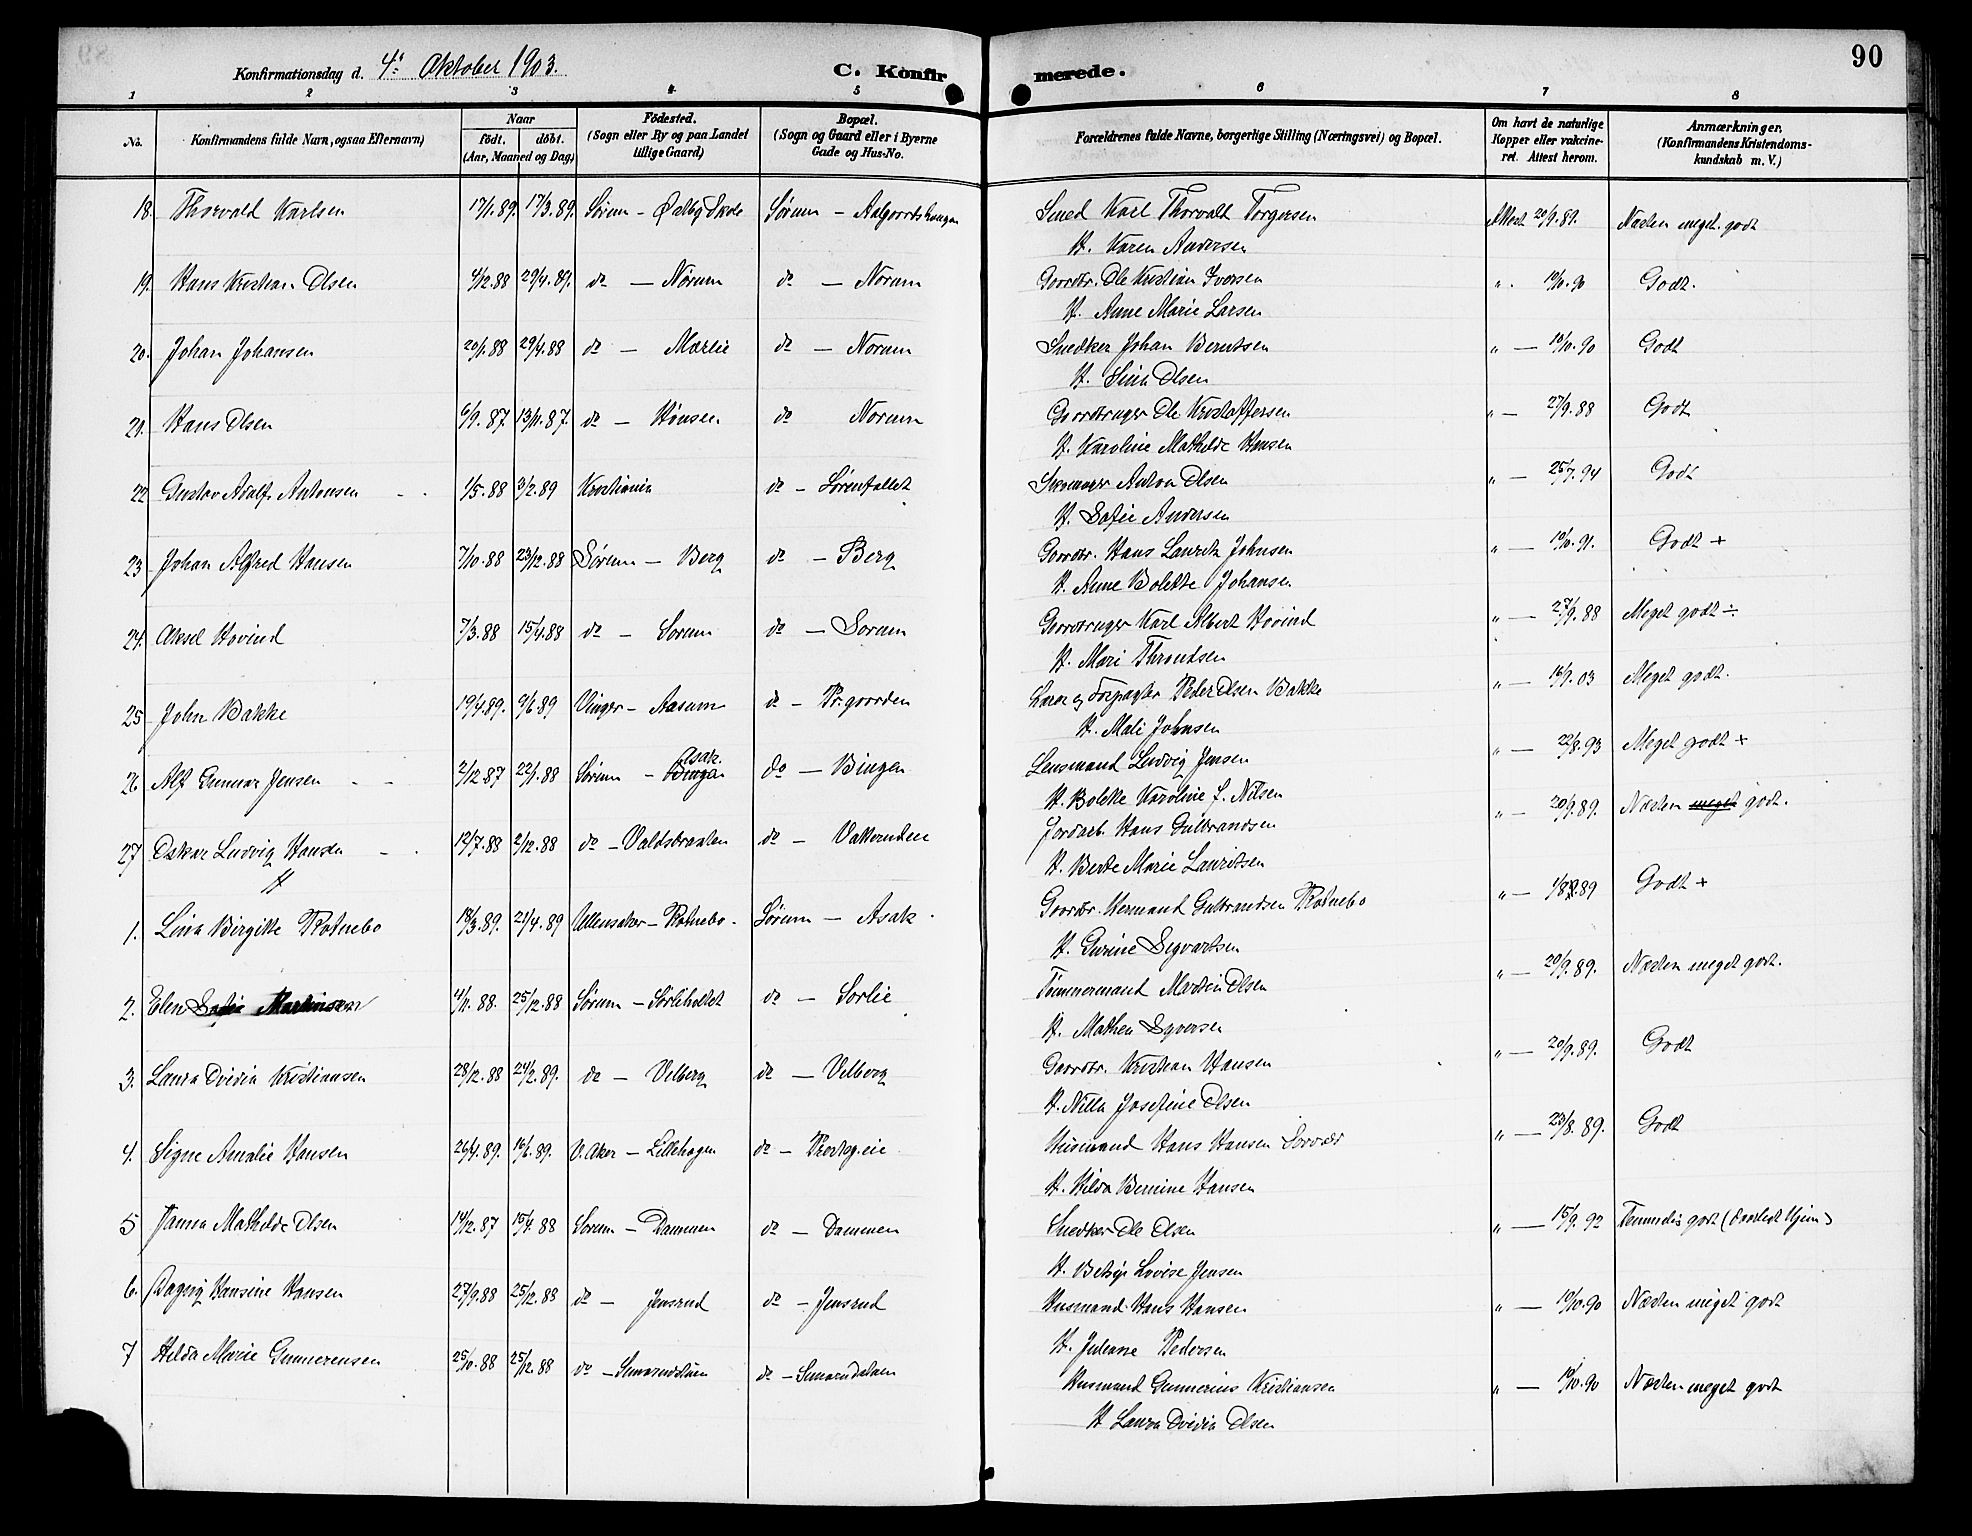 90
Konfirmationsdag d. 4de Oktober 1903. C. Konfirmerede.
1 2 3 4 5 6 7 8
No. Konfirmandens fulde Navn, ogsaa Efternavn) Naar Födested. Bopæl. Forældrenes fulde Navne, borgerlige Stilling (Næringsvei) og Bopæl. Om havt de naturlige Anmærkninger.
födt. döbt. (Sogn eller By og paa Landet (Sogn og Gaard eller i Byerne Kopper eller vakcine- (Konfirmandens Kristendoms-
(Aar, Maaned og Dag) tillige Gaard) Gade og Hus-No. ret. Attest herom. kundskab m. V.)
18. Thorvald Karlsen 17/1.89. 17/3.89. Sørum - Østby Skole Sørum - Aalgaardshaugen Smed Karl Thorvald Torgersen Attest 20/9.89. Næsten meget godt
H. Karen Andersen
19. Hans Kristian Olsen 4/12.88 29/4.89. do - Nørum do - Norum Gaardbr. Ole Kristian Iversen " 10/10.90 Godt.
H. Anne Marie Larsen
20. Johan Johansen 20/1.88 29/4.88 do - Mærlie do - Norum Snedker Johan Berntsen " - 10/10.90 Godt
H. Sina Olsen
21. Hans Olsen 6/9.87. 13/11.87. do - Hønsen do Norum Gaardbruger Ole Kristoffersen " - 27/9.88 Godt
H. Karoline Mathilde Hansen
22 Gustav Adolf Antonsen 1/5.88 3/2.89 Kristiania do - Sørenfallet Skomager Anton Olsen " - 25/7.94 Godt
H. Sofie Andersen
23 Johan Alfred Hansen 7/10.88 23/12.88 Sørum - Berg do - Berg Gaardbr. Hans Lauritz Johnsen " - 10/10.91. Godt +
H. Anne Bolette Johansen
24. Aksel Hovind 7/3.88 15/4.88 do - Sorum do - Sorum Gaardbruger Karl Albert Hovind " - 27/9.88 Meget godt ÷
H. Mari Throndsen
25 John Bakke 19/4.89. 9/6.89 Vinger - Aasum do - Pr.gaarden Lærer og Forpagter Peder Olsen Bakke " - 16/9.03 Meget godt.
H. Mali Johnsen
26 Alf Gunnar Jensen 2/12.87 22/1.88 Sørum - Bingen Asak. do - Bingen Lensmand Ludvig Jensen " - 22/8.93 Meget godt +
H. Bolette Karoline f. Nilsen
27 Oskar Ludvig Hansen 12/7.88 2/12.88 do - Valdsbraaten do - Vakkerudeie Jordarb. Hans Gulbrandsen " - 20/9.89. Næsten meget godt.
H. Berte Marie Lauritsen
H
1. Lina Birgitte Rotnebo 18/3.89. 21/4.89 Ullensaker - Rotnebo. Sørum - Asak Gaardbr. Hermand Gulbrandsen Rotnebo " - 1/8.89 Godt +
H. Gurine Sigvartsen
2. Elen Sofie Martinsen 4/11.88. 25/12.88 Sørum - Sørliholtet do - Sorlie Tømmermand Martin Olsen " - 20/9.89. Næsten meget godt.
H. Mathea Syversen
3. Laura Ovidia Kristiansen 28/12.88 24/2.89. do - Velberg do - Velberg Gaardbr. Kristian Hansen " - 20/9.89. Godt
H. Nilla Josefine Olsen
4. Signe Amalie Hansen 26/4.89. 16/6.89. V. Aker - Lillehagen do - Prestegeie Husmand Hans Hansen " - 23/8.89. Godt
H. Hilda Bernine Hansen
5 Janna Mathilde Olsen 14/12.87 15/4.88 Sorum - Dammen do - Dammen Snedker Ole Olsen " - 15/9.92 Temmelig godt (daarligt Hjem)
H. Betsy Lovise Jensen
6. Dagny Hansine Hansen 27/9.88 25/12.88 do - Jensrud do - Jensrud Husmand Hans Hansen " - 10/10.90 Næsten meget godt
H. Juliane Pedersen
7 Hilda Marie Gunnerensen 25/10.88 25/12.88 do - do - Husmand Gunnerius Kristiansen " - 10/10.90 Næsten meget godt
H Laura Ovidia Olsen